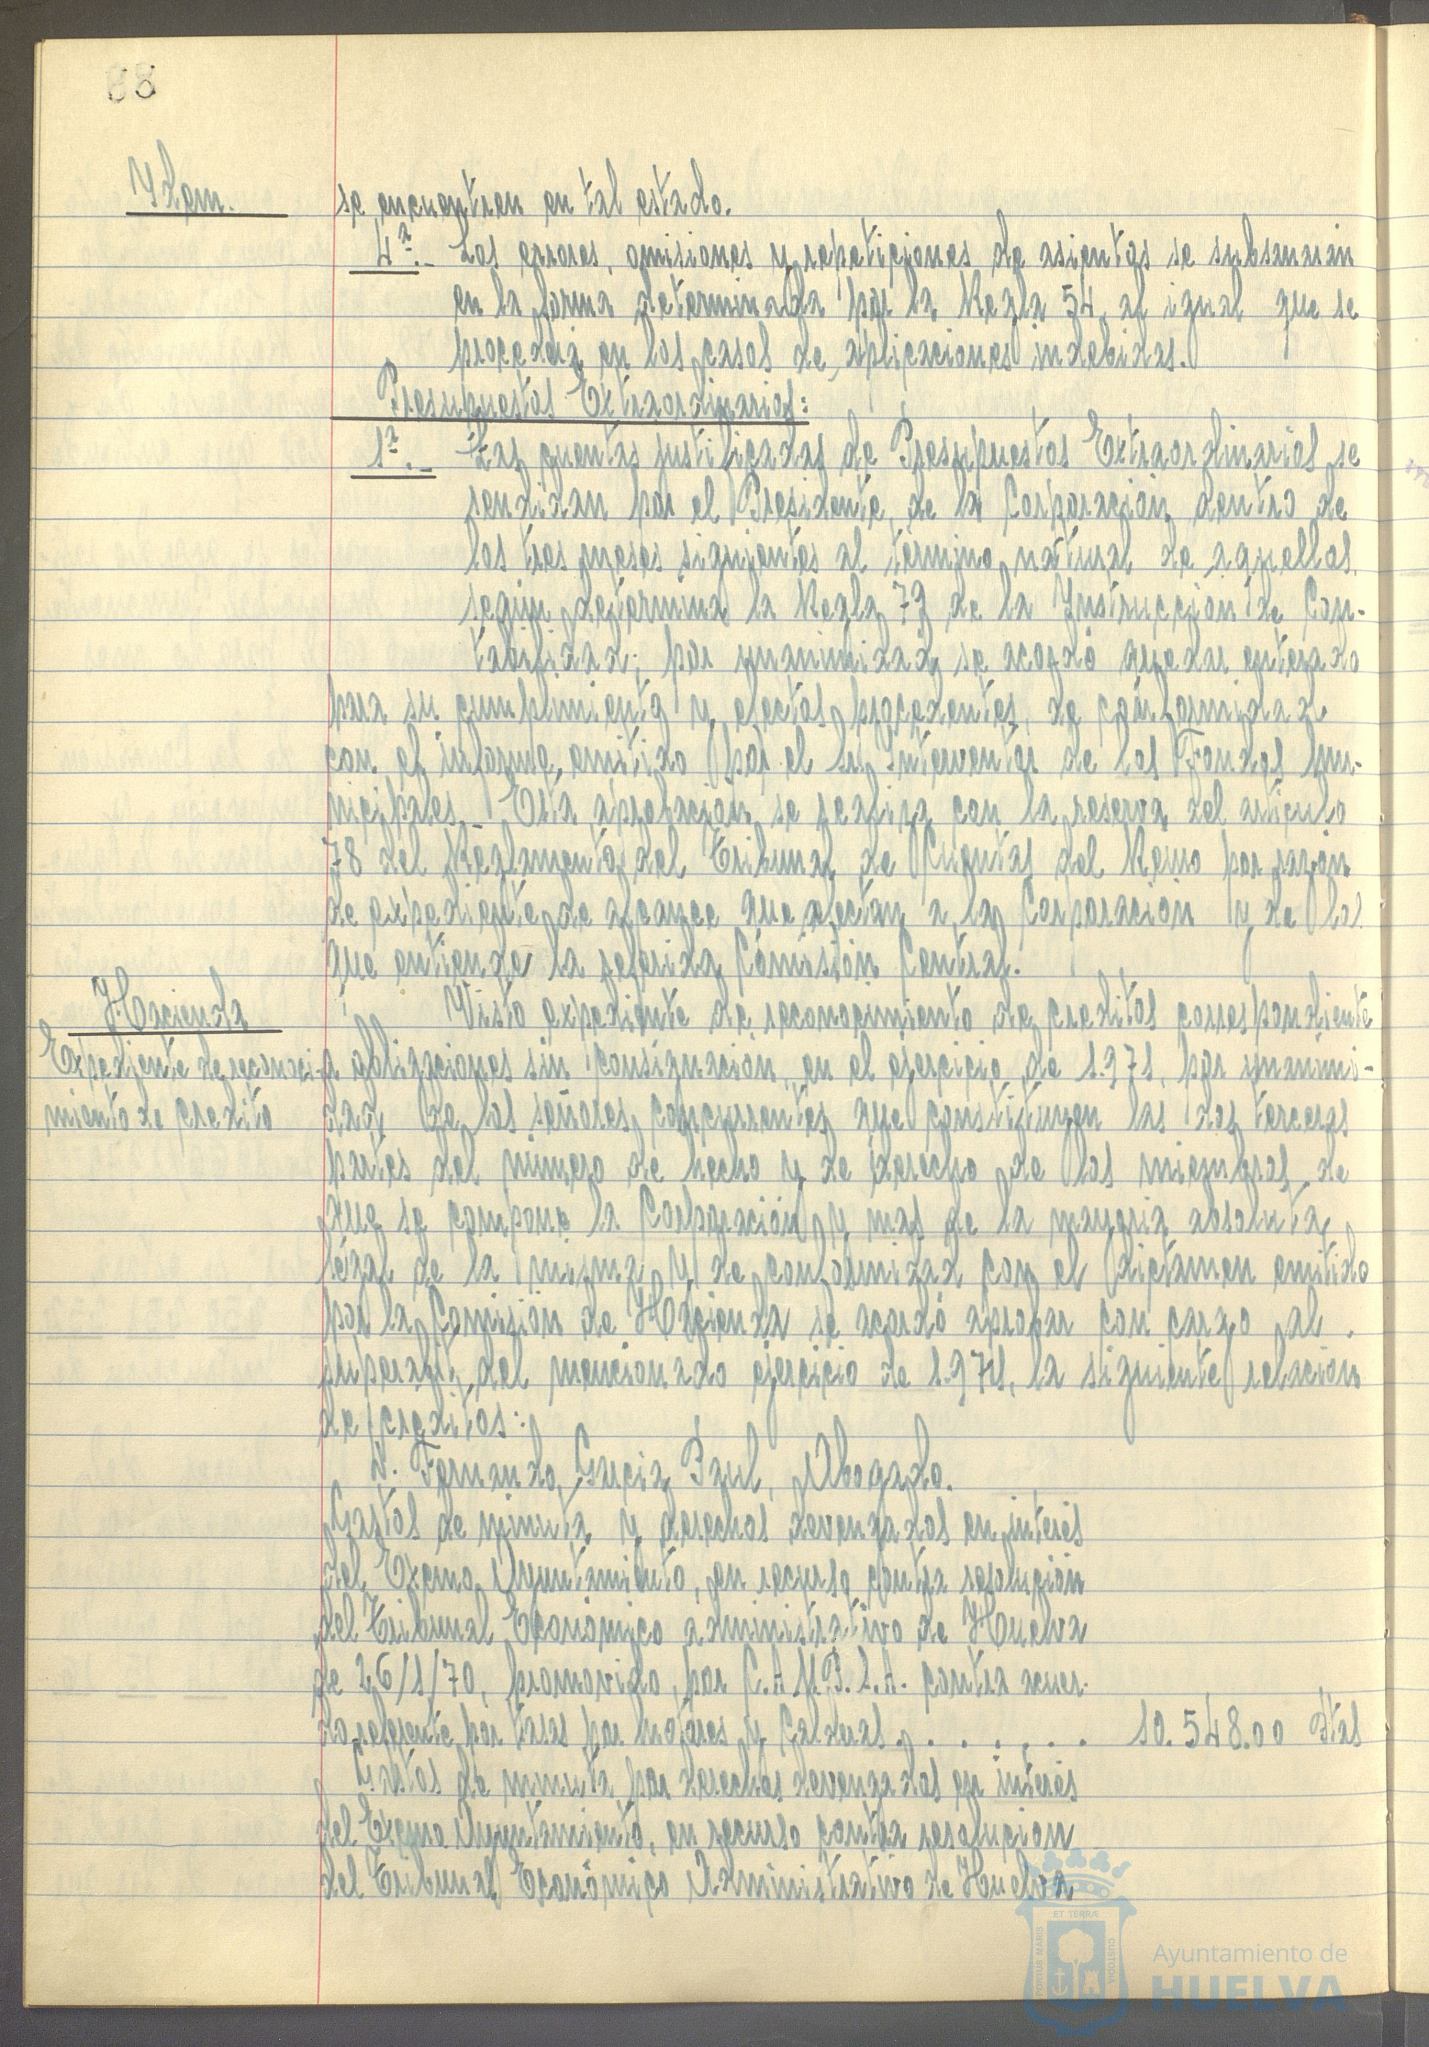 88
Ydem.
se encuentren en tal estado.
4ª.- Los errores, omisiones y repeticiones de asientos se subsanarán
en la forma determinada por la Regla 54, al igual que se
procederá en los casos de aplicaciones indebidas.
Presupuestos Extraordinarios:
1ª.- Las cuentas justificadas de Presupuestos Extraordinarios se
rendirán por el Presidente, de la Corporación, dentro de
los tres meses siguientes al término natural de aquellos
según determina la Regla 73 de la Instrucción de Con-
tabilidad; por unanimidad, se acordó quedar enterado
para su cumplimiento y efectos procedentes, de conformidad
con el informe, emitido por el Sr. Interventor de los Fondos Mu-
nicipales.- Esta aprobación, se realiza con la reserva del artículo
78 del Reglamento, del Tribunal de Cuentas del Reino por razón
de expediente, de alcance que afectan a la Corporación y de los
que entiende la referida Comisión Central.
Hacienda
Expediente de reconoci-
miento de credito
Visto expediente de reconocimiento de creditos correspondiente
a obligaciones sin consignación, en el ejercicio, de 1.971, por unánimi-
dad de los señores concurrentes que constituyen las dos terceras
partes del número de hecho y de derecho de los miembros de
que se compone la Corporación y mas de la mayoria absoluta
legal de la misma y de conformidad con el dictamen emitido
por la Comisión de Hacienda se acordó aprobar con cargo al
superavit, del mencionado ejercicio de 1.971, la siguiente relacion
de creditos:
D. Fernando, Garcia Paul, Abogado.
Gastos de minuta y derechos devengados en interés
del Excmo. Ayuntamiento, en recurso contra resolución
del Tribunal Económico administrativo de Huelva
de 26/1/70, promovido, por C.A.M.P.S.A. contra acuer-
do referente por tasas por motores y calderas . . . . . . . 10.548.00 Ptas
Gastos de minuta por derechos devengados en interés
del Excmo. Ayuntamiento, en recurso contra resolución
del Tribunal Económico Administrativo de Huelva
PORTUS MARIS ET TERRÆ CUSTODIA
Ayuntamiento de
HUELVA